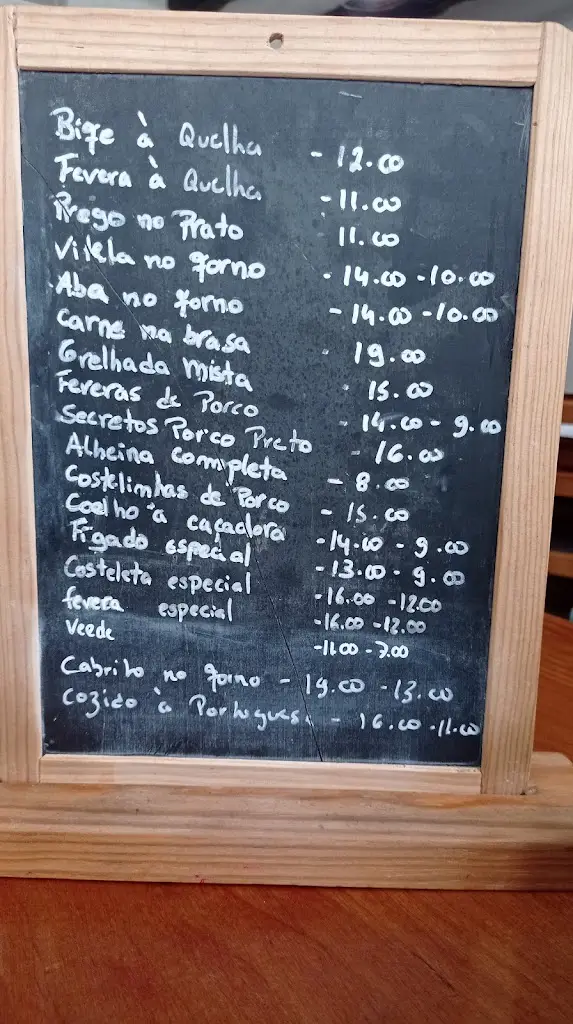 Bife à Quelha - 12.00
Fevera à Quelha - 11.00
Prego no Prato 11.00
Vitela no forno - 14.00 - 10.00
Aba no forno - 14.00 - 10.00
Carne na brasa - 19.00
Grelhada mista - 15.00
Feveras de Porco - 14.00 - 9.00
Secretos Porco Preto - 16.00
Alheina completa - 8.00
Costelinhas de Porco - 15.00
Coelho à caçadora - 14.00 - 9.00
Figado especial - 13.00 - 9.00
Costeleta especial - 16.00 - 12.00
fevera especial - 16.00 - 12.00
Veede - 11.00 - 7.00
Cabrito no forno - 19.00 - 13.00
Cozido à Portuguesa - 16.00 - 11.00